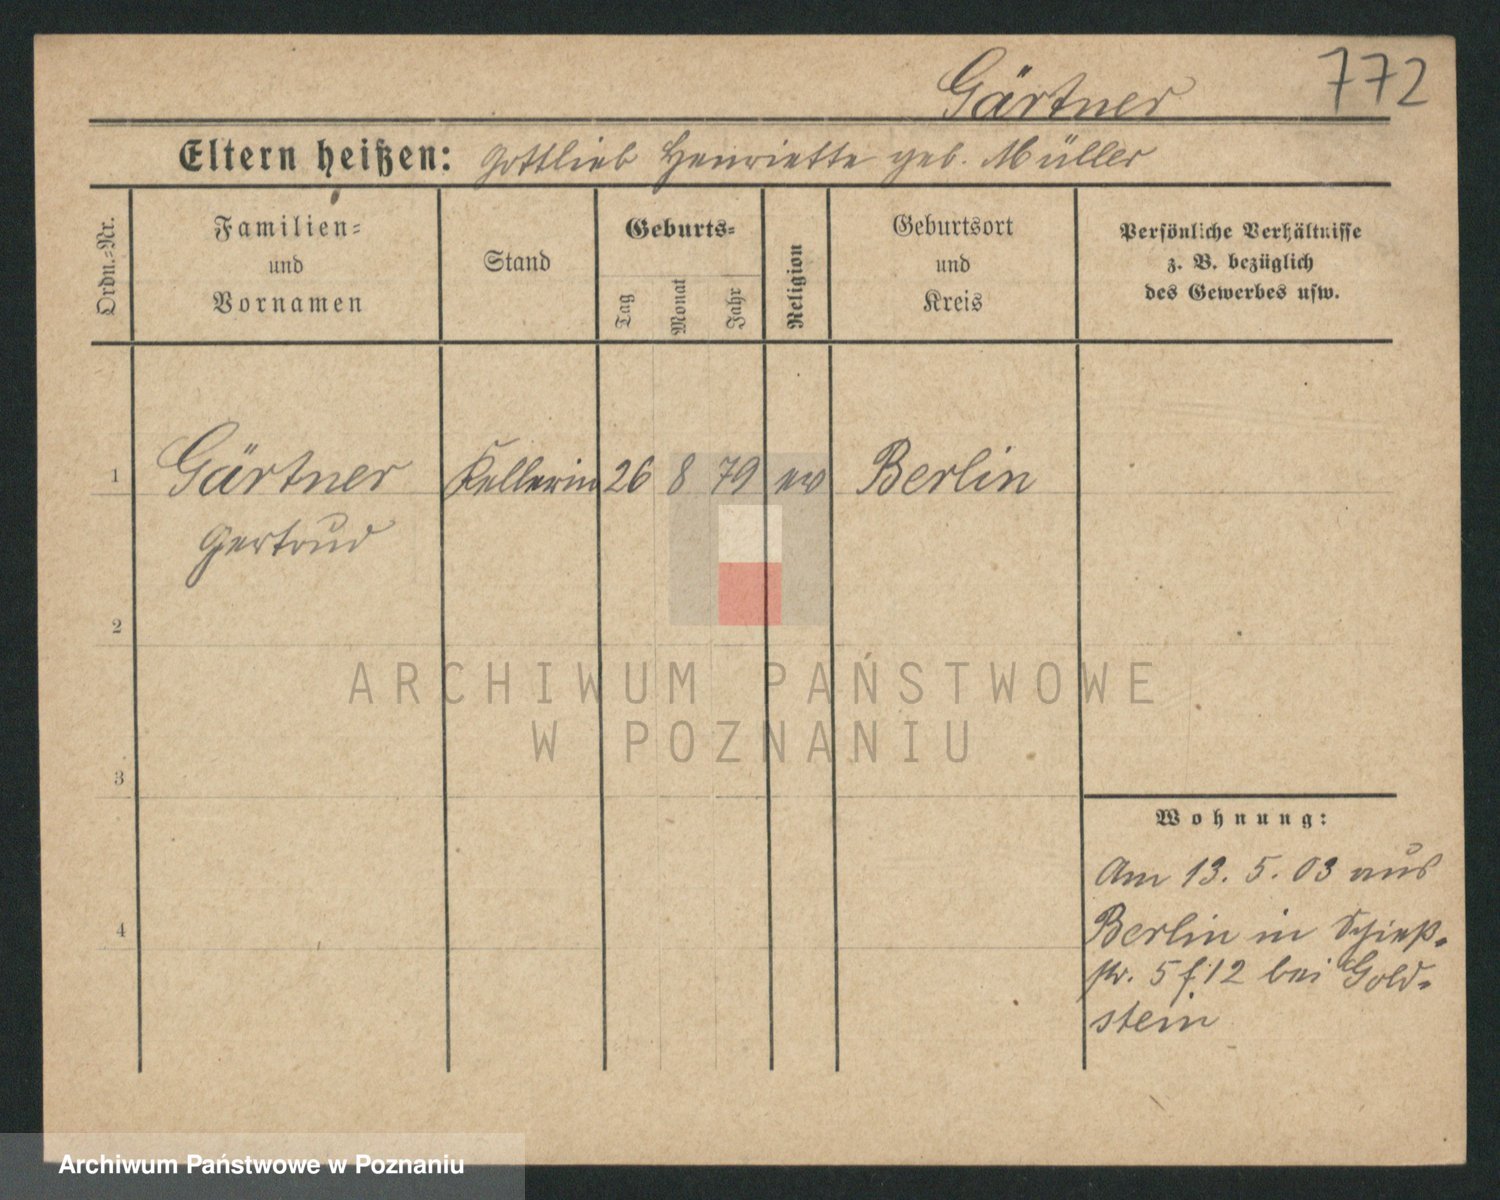 Gärtner
772
Eltern heißen: Gottlieb Henriette geb. Müller
Ordn.-Nr.
Familien-
und
Vornamen
Stand
Geburts-
Tag
Monat
Jahr
Religion
Geburtsort
und
Kreis
Persönliche Verhältnisse
z. B. bezüglich
des Gewerbes usw.
1 Gärtner Kellerin 26 8 79 ev Berlin
Gertrud
2
ARCHIWUM PAŃSTWOWE
W POZNANIU
3
Wohnung:
Am 13. 5. 03 aus
4
Berlin in Schieß-
str. 5 f. 12 bei Gold-
stein
Archiwum Państwowe w Poznaniu